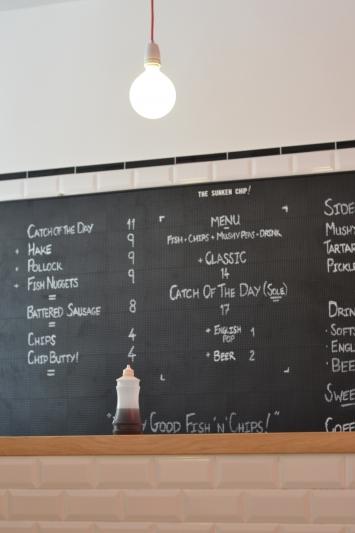 THE SUNKEN CHIP!
CATCH OF THE DAY 11
+ HAKE 9
+ POLLOCK 9
+ FISH NUGGETS 9
BATTERED SAUSAGE 8
CHIPS 4
CHIP BUTTY! 4
MENU
FISH + CHIPS + MUSHY PEAS + DRINK
+ CLASSIC
14
CATCH OF THE DAY (SOLE)
17
+ ENGLISH POP 1
+ BEER 2
GOOD FISH 'N' CHIPS!"
SIDE
MUSHY
TARTAR
PICKL
DRIN
· SOFTS
· ENGL
· BEE
SWEE
COFFE